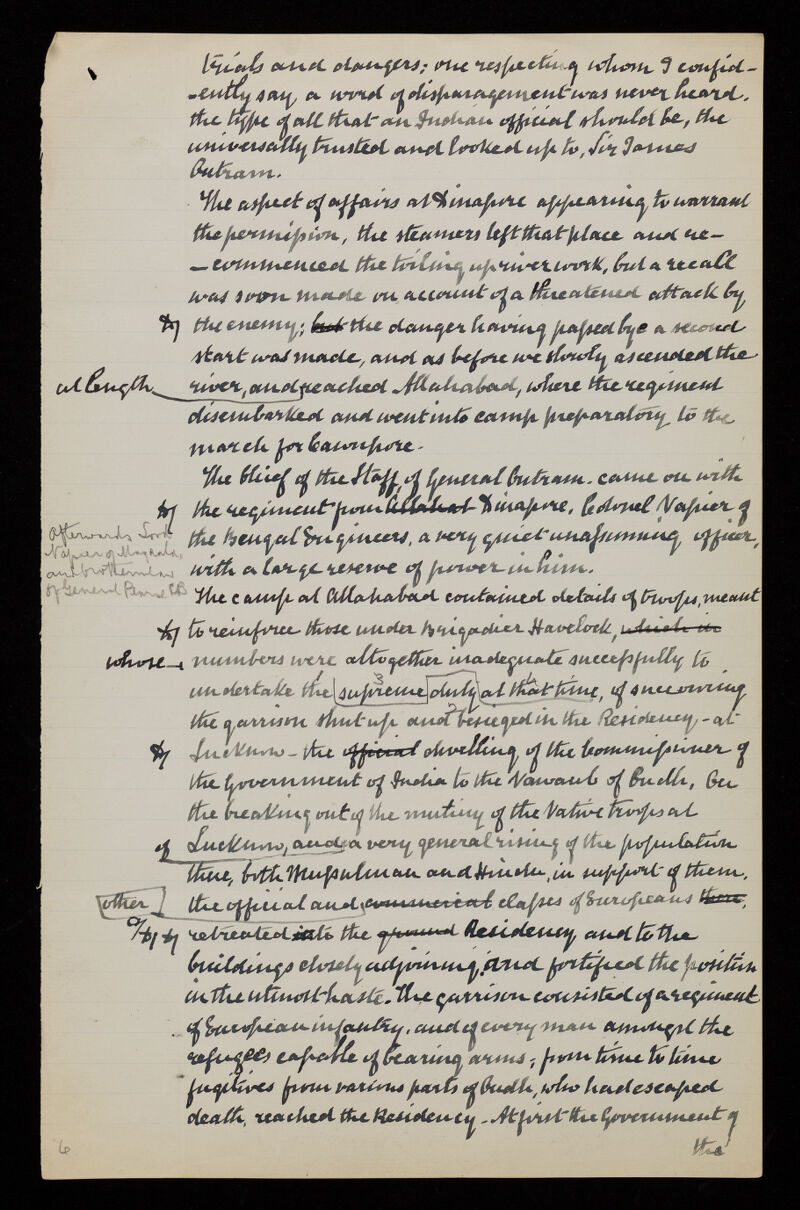 trials and dangers; one respecting whom I confid-
-ently say, a word of disparagement was never heard.
the type of all that an Indian official should be, the
universally trusted and looked up to, Sir James
Outram.
The aspect of affairs at Dinapore appearing to warrant
the permission, the steamers left that place and re-
-commenced the toiling up river work, but a recall
was soon made on account of a threatened attack by
the enemy; but the danger having passed bye a second
start was made, and as before we slowly ascended the
at length
river, and reached Allahabad, where the regiment
disembarked and went into camp preparatory to the
march for Cawnpore.
The Chief of the Staff, of General Outram. came on with
the regiment from Allahat Dinapore, Colonel Napier of
afterwards Lord
Napier of Magdala,
and brother in law
of General Pearse CB
the Bengal Engineers, a very quiet unassuming officer,
with a large reserve of power in him.
The camp at Allahabad contained details of troops, meant
to reinforce those under Brigadier Havelock, which in
whose
numbers were altogether inadequate successfully to
undertake the supreme duty at that time, of succouring
the garrison shut up and besieged in the Residency - at
Lucknow - the official dwelling of the Commissioner of
the Government of India to the Nawaub of Oudh, On
the breaking out of the mutiny of the Native troops at
of
Lucknow, and a very general rising of the population
there, both Mussulman and Hindu, in support of them,
other
the official and commercial classes of Europeans there,
retreated into the ground Residency and to the
buildings closely adjoining, and fortified the position
in the utmost haste. The garrison consisted of a regiment
of European infantry, and of every man amongst the
refugees capable of bearing arms; from time to time
fugitives from various parts of Oudh, who had escaped
death, reached the Residency - At first the Government of
the
6